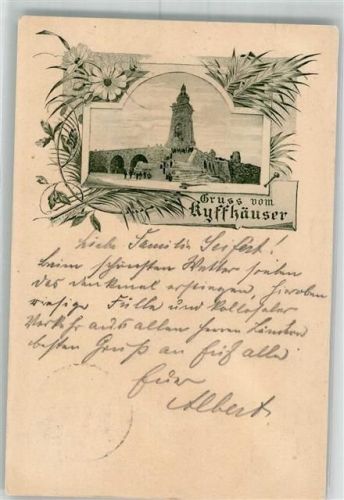 Gruss vom
Kyffhäuser
Liebe Familie Seifert!
beim schönsten Wetter soeben
das Denkmal erstiegen, hieroben
riesige Fülle und kollosaler
Verkehr aus allen Herren Länder
besten Gruß an Euch alle
Euer
Albert.